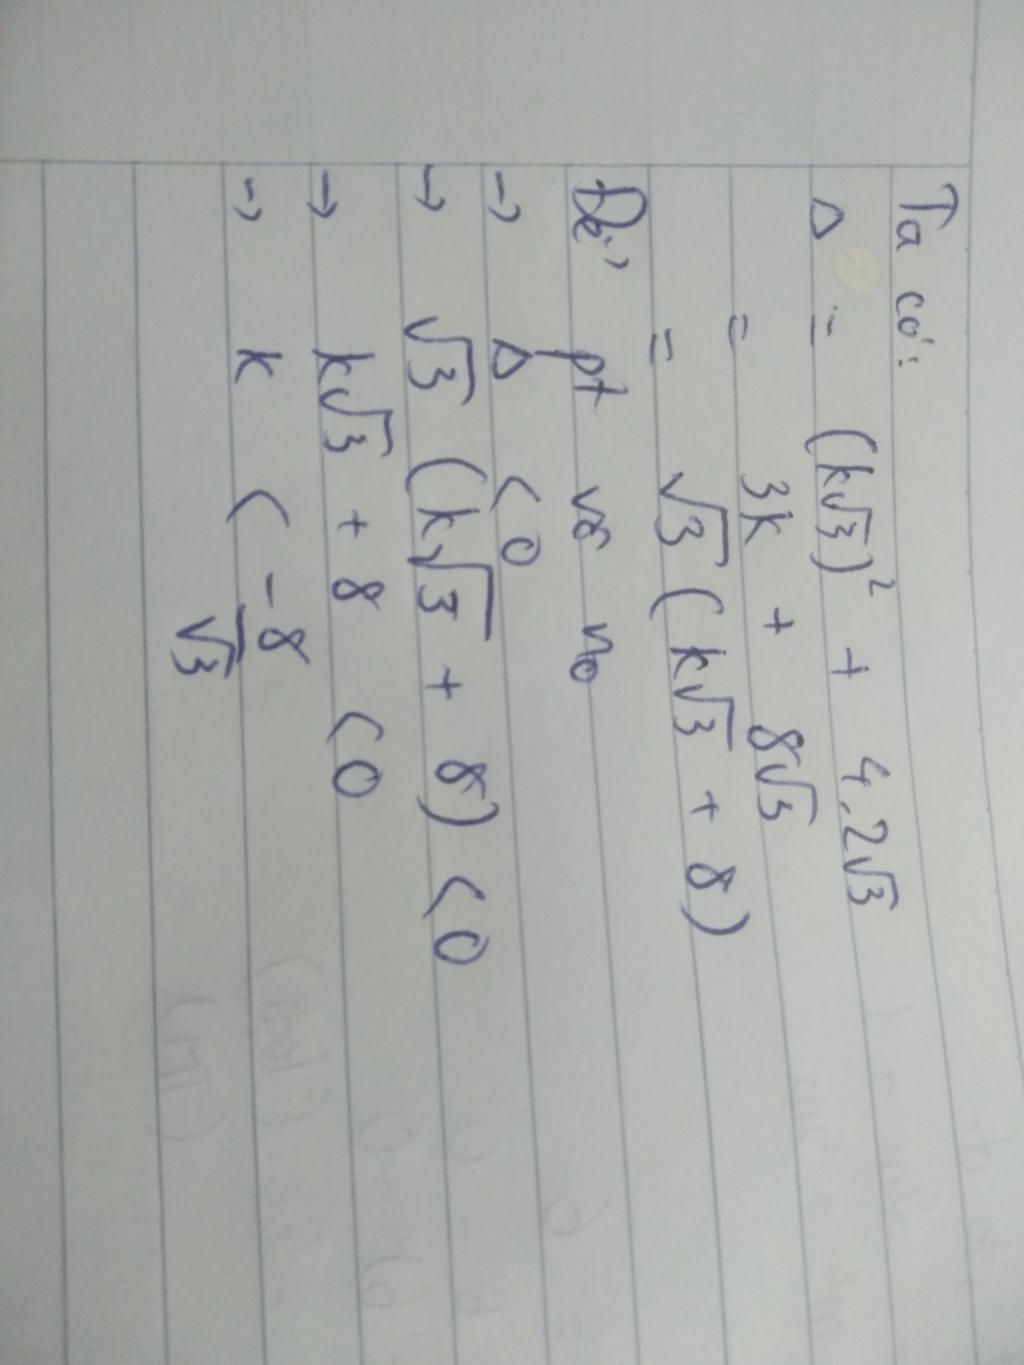 Ta có:
Δ = (k√3)² + 4.2√3
= 3k + 8√3
= √3 (k√3 + 8)
Để pt vô no
→ Δ < 0
→ √3 (k√3 + 8) < 0
→ k√3 + 8 < 0
→ k < -8/√3